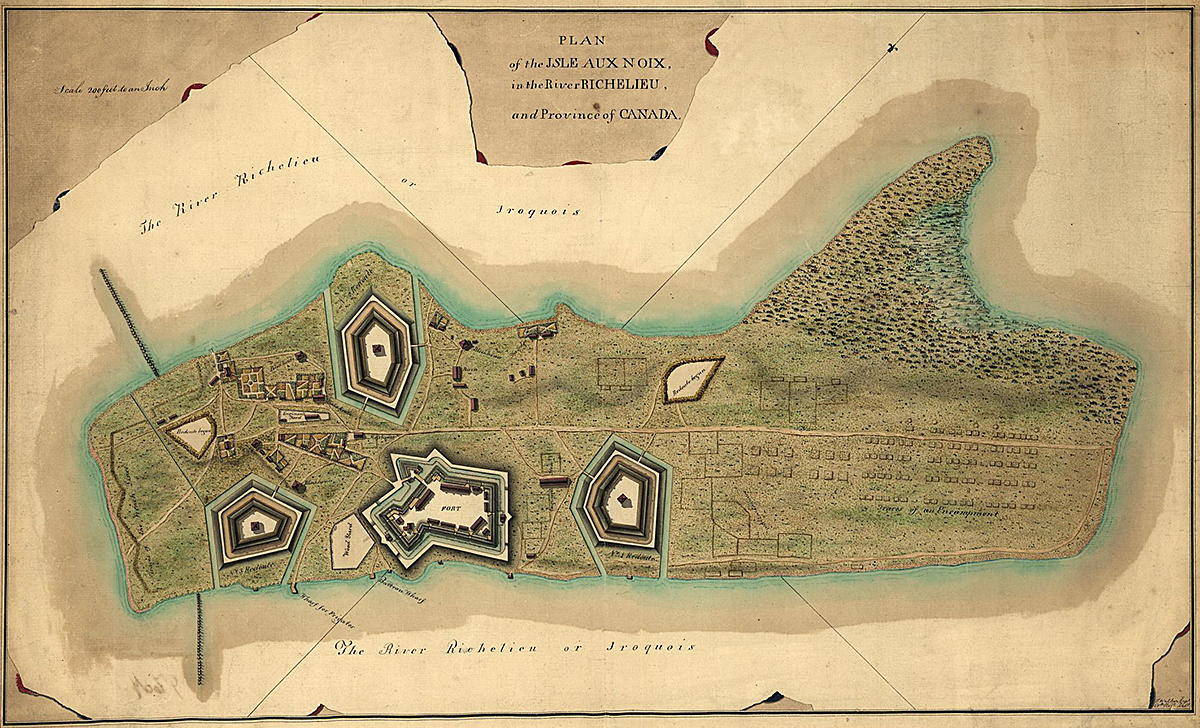 PLAN
of the ISLE AUX NOIX,
in the River RICHELIEU,
and Province of CANADA.
Scale 200 feet to an Inch
The River Richelieu or Iroquois
Redoubt begun
Redoubt begun
FORT
Wood Yard
Nº 3 Redoubt
Nº 1 Redoubt
of an Encampment
Batteau Wharf
Wharf for Frigates
The River Richelieu or Iroquois